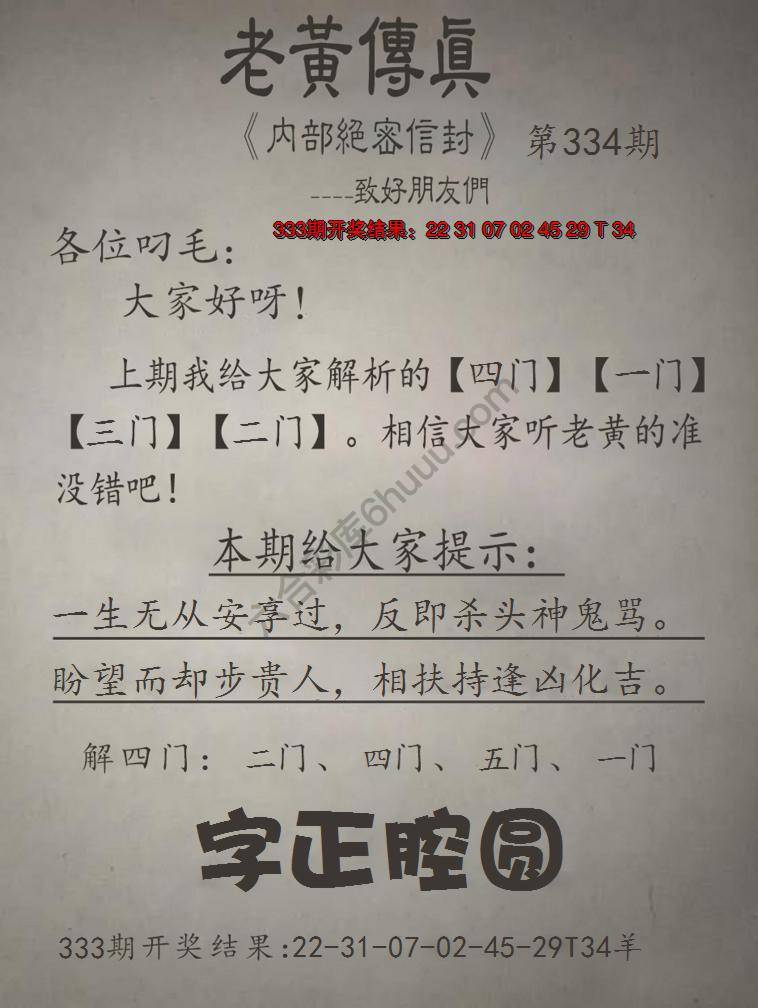 老黃傳真
《内部絕密信封》 第334期
----致好朋友們
333期开奖结果：22 31 07 02 45 29 T 34
各位叼毛：
大家好呀！
上期我给大家解析的【四门】【一门】
【三门】【二门】。相信大家听老黄的准
没错吧！
本期给大家提示：
一生无从安享过，反即杀头神鬼骂。
盼望而却步贵人，相扶持逢凶化吉。
解四门： 二门、 四门、 五门、 一门
字正腔圆
333期开奖结果:22-31-07-02-45-29T34羊
六合彩库6huuu.com